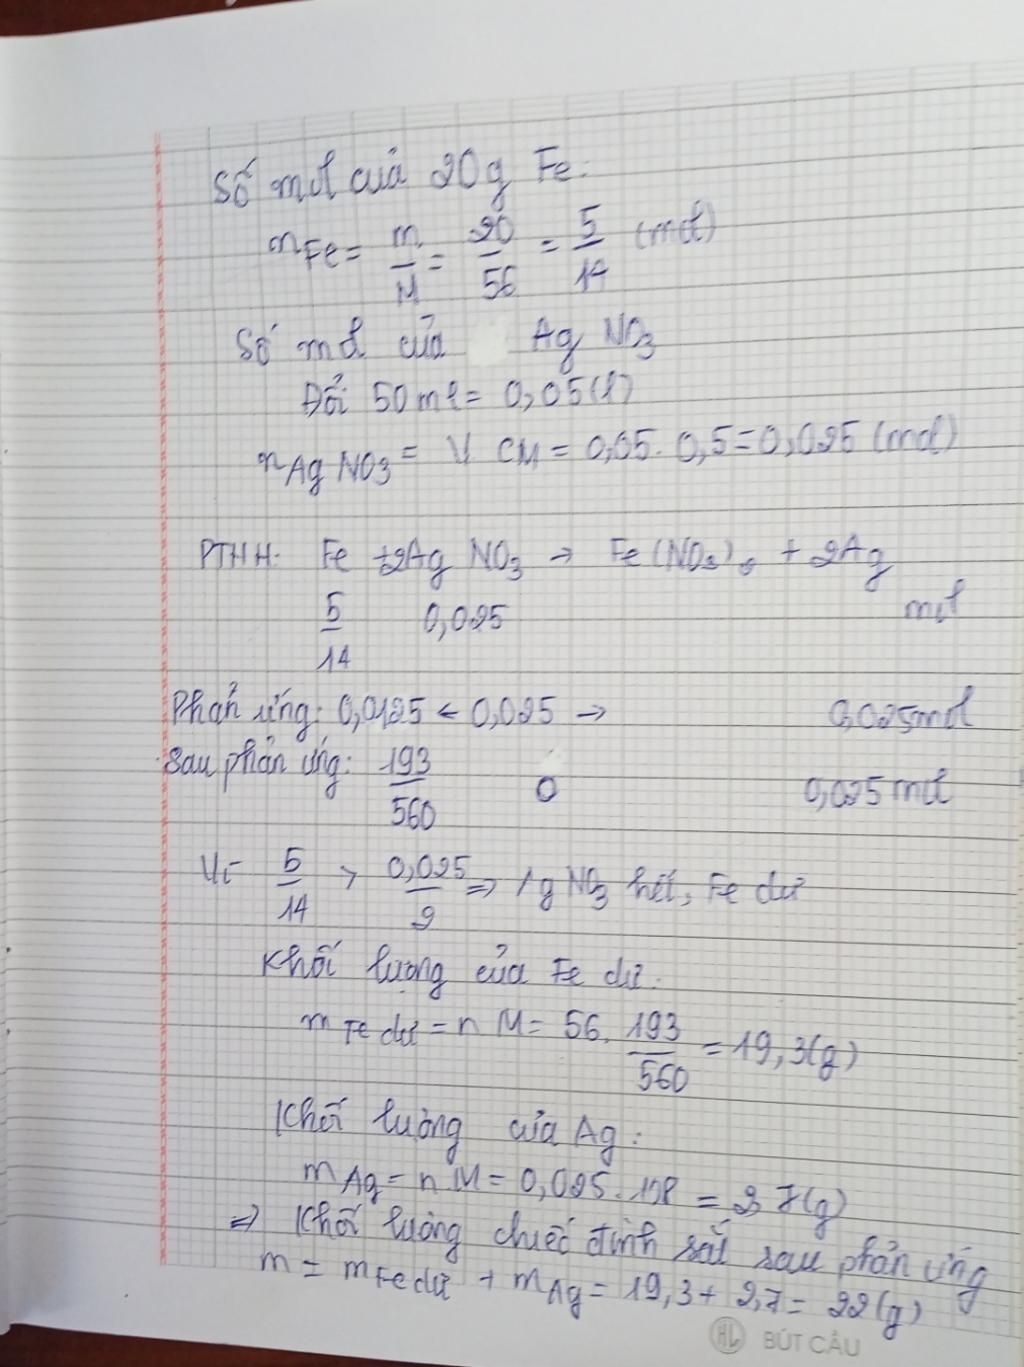 Số mol của 20g Fe:
nFe = m/M = 20/56 = 5/14 (mol)
Số mol của Ag NO3
Đổi 50ml = 0,05(l)
nAgNO3 = V CM = 0,05. 0,5 = 0,025 (mol)
PTHH: Fe + 2Ag NO3 → Fe(NO3)2 + 2Ag
5/14 0,025 mol
Phản ứng: 0,0125 ← 0,025 → 0,025mol
Sau phản ứng: 193/560 0 0,025 mol
Vì 5/14 > 0,025/2 => AgNO3 hết, Fe dư
Khối lượng của Fe dư:
mFe dư = n M = 56. 193/560 = 19,3(g)
Khối lượng của Ag:
mAg = n M = 0,025. 108 = 2,7(g)
=> Khối lượng chiếc đinh sắt sau phản ứng
m = mFe dư + mAg = 19,3 + 2,7 = 22(g)
HL BÚT CẨU